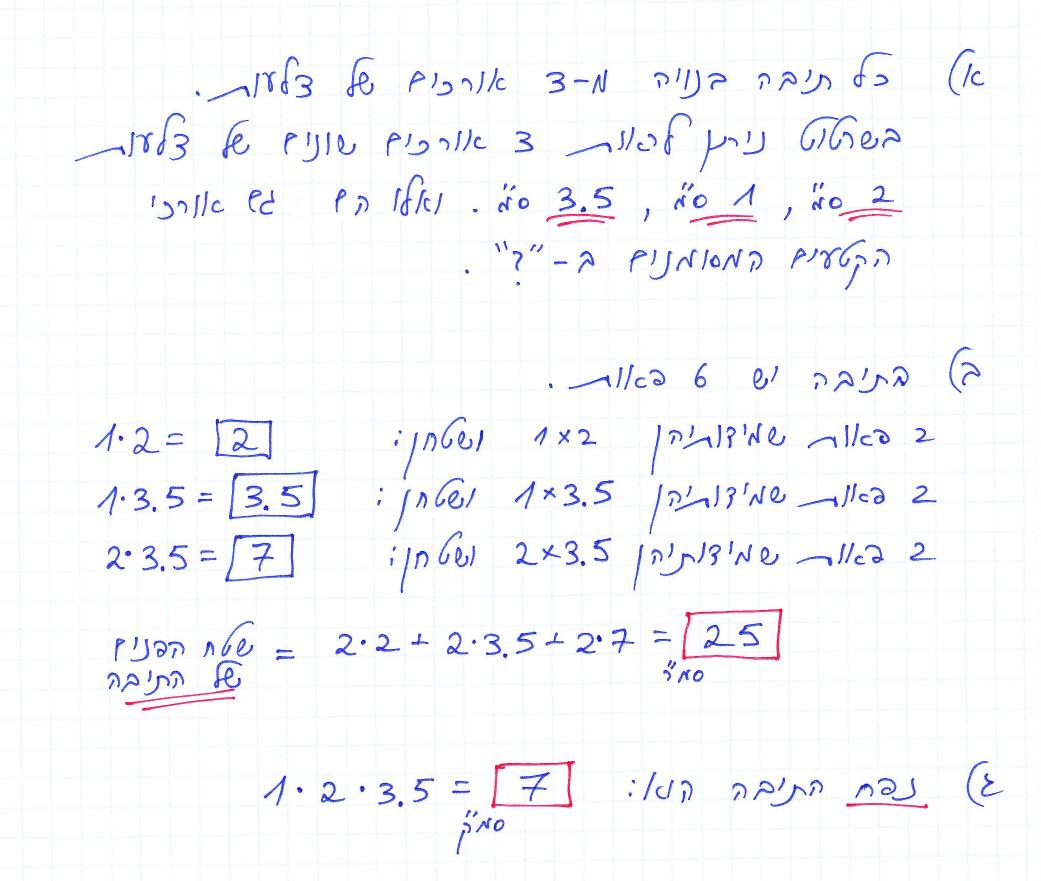 א) כל תיבה בנויה מ-3 אורכים של צלעות.
בשרטוט ניתן לראות 3 אורכים שונים של צלעות
2 ס"מ, 1 ס"מ, 3.5 ס"מ. ואלו הם גם אורכי
הקטעים המסומנים ב-"?".
ב) בתיבה יש 6 פאות.
2 פאות שמידותיהן 1×2 ושטחן: 1·2= 2
2 פאות שמידותיהן 1×3.5 ושטחן: 1·3.5= 3.5
2 פאות שמידותיהן 2×3.5 ושטחן: 2·3.5= 7
שטח הפנים של התיבה = 2·2+2·3.5+2·7= 25 סמ"ר
ג) נפח התיבה הוא: 1·2·3.5= 7 סמ"ק